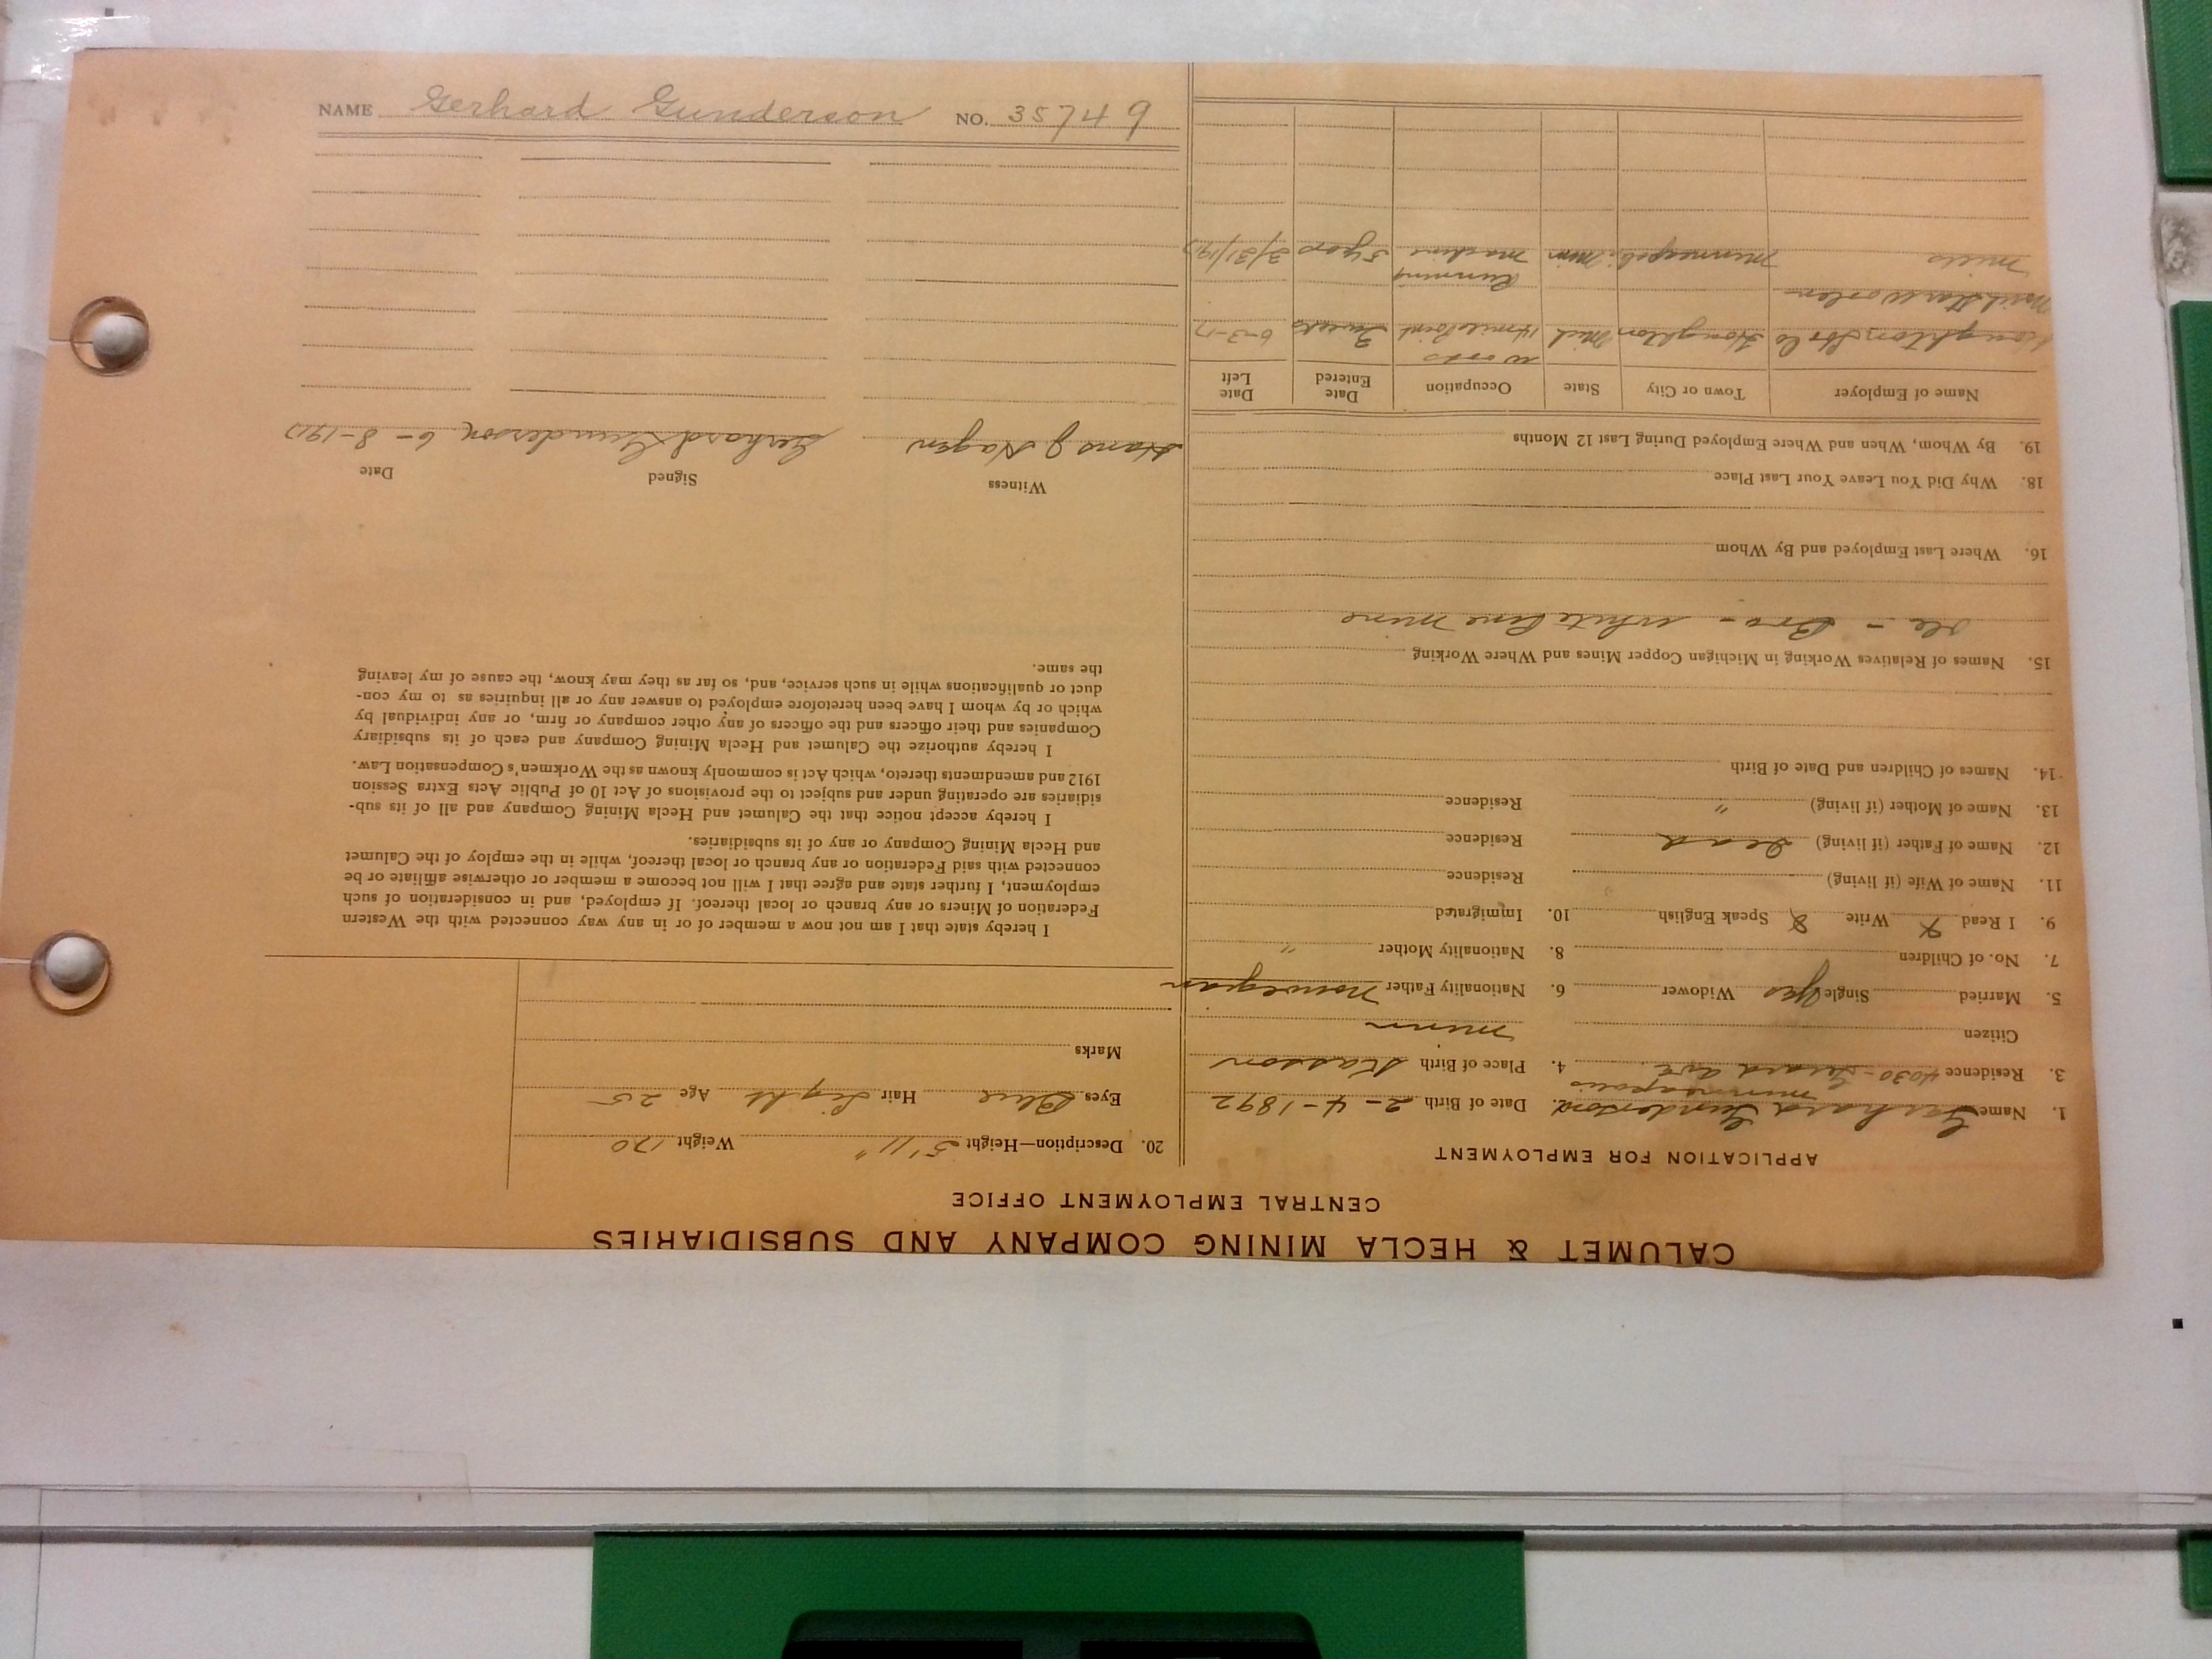 NAME Gerhard Gunderson NO. 35749
CALUMET & HECLA MINING COMPANY AND SUBSIDIARIES
CENTRAL EMPLOYMENT OFFICE
APPLICATION FOR EMPLOYMENT
1. Name Gerhard Gunderson 2. Date of Birth 2-4-1892
Minneapolis
3. Residence 4030 - Girard Ave. 4. Place of Birth Kasson
Citizen Minn
5. Married Single Yes Widower 6. Nationality Father Norwegian
7. No. of Children 8. Nationality Mother "
9. I Read X Write X Speak English 10. Immigrated
11. Name of Wife (if living) Residence
12. Name of Father (if living) Dead Residence
13. Name of Mother (if living) " Residence
14. Names of Children and Date of Birth
15. Names of Relatives Working in Michigan Copper Mines and Where Working
Ole - Bro - White Pine Mine
16. Where Last Employed and By Whom
18. Why Did You Leave Your Last Place
19. By Whom, When and Where Employed During Last 12 Months
Name of Employer Town or City State Occupation Date Entered Date Left
Woods
Houghton Houghton Mich 14 mile Point weeks 6-3-17
North Star Woolen Running
Mills Minneapolis Minn Machine 5 yrs 3/31/1917
20. Description—Height 5'11" Weight 170
Eyes Blue Hair Light Age 25
Marks
I hereby state that I am not now a member of or in any way connected with the Western
Federation of Miners or any branch or local thereof. If employed, and in consideration of such
employment, I further state and agree that I will not become a member or otherwise affiliate or be
connected with said Federation or any branch or local thereof, while in the employ of the Calumet
and Hecla Mining Company or any of its subsidiaries.
I hereby accept notice that the Calumet and Hecla Mining Company and all of its sub-
sidiaries are operating under and subject to the provisions of Act 10 of Public Acts Extra Session
1912 and amendments thereto, which Act is commonly known as the Workmen's Compensation Law.
I hereby authorize the Calumet and Hecla Mining Company and each of its subsidiary
Companies and their officers and the officers of any other company or firm, or any individual by
which or by whom I have been heretofore employed to answer any or all inquiries as to my con-
duct or qualifications while in such service, and, so far as they may know, the cause of my leaving
the same.
Witness Signed Date
Hans J Hagen Gerhard Gunderson 6-8-1917